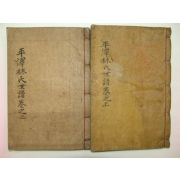 平澤林氏世譜卷之
平澤林氏世譜卷之